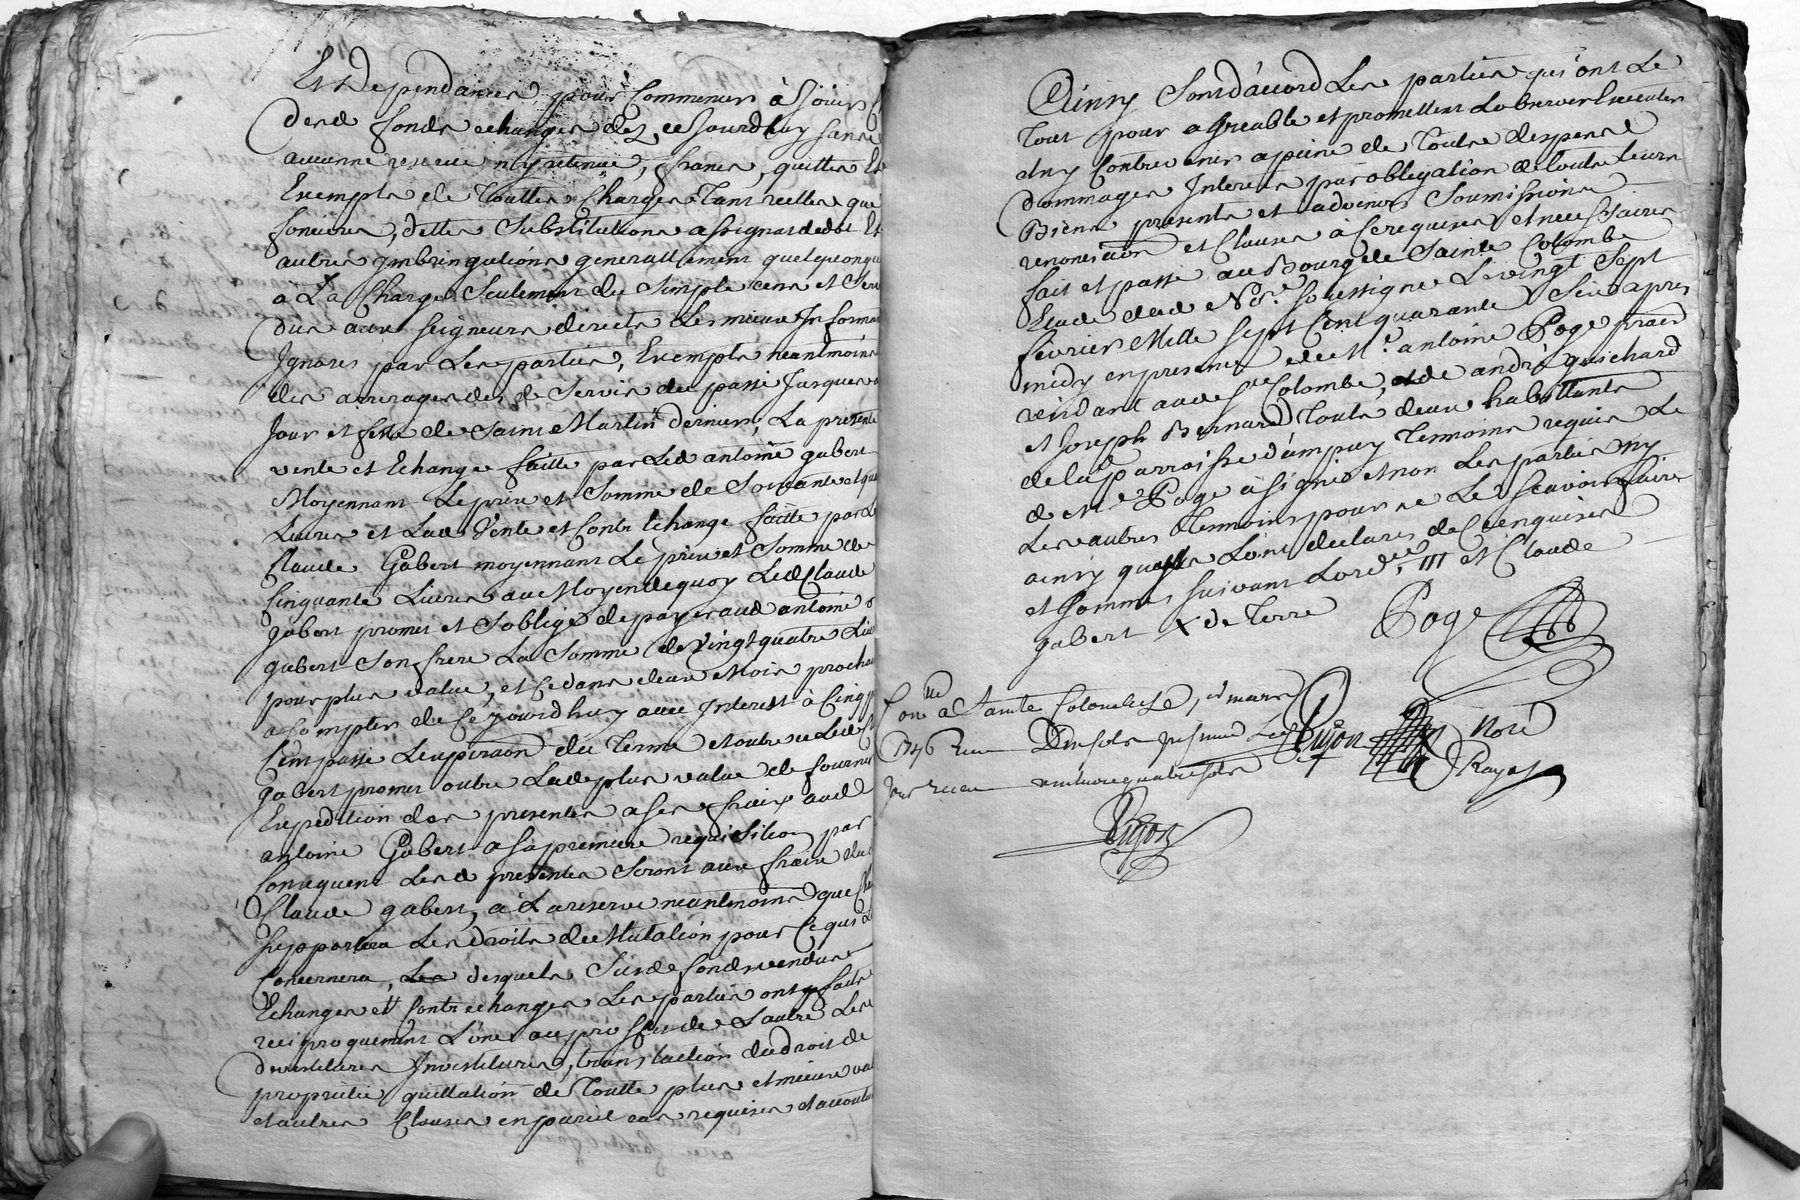 Et Dependances pour Commencer à Jouir
Desd fonds echangés dez ce Jourdhuy sans
aucunne reserve ny retenue, francs, quittes Et
Exempts de Touttes Charges Tant reelles que
foncieres, dettes Substitutions assignatdedot Et
autres Imbringations generallement quelqueonqu
a La Charge Seulement du Simple cens et Serv
Dus aux seigneurs directs Les mieux Informa
Ignorés par Les parties, Exempts neantmoins
des arrerages des de Servis du passé Jusques
Jour et feste de Saint Martin dernier, La presente
vente et Echange faitte par Led antoine gabert
Moyennant Le prix et Somme de Soixante et qua
Livres et Lad Vente et Contr Echange faitte par Le
Claude Gabert moyennant Le prix et Somme de
Cinquante Livres au Moyen dequoy Led Claude
gabert promet et S'oblige de payer aud antoine
gabert Son frere La Somme de Vingt quatre Liv
pour plus value, et Ce dans deux Mois prochai
a Compter de Ce Jourd huy avec Interest à Cinq p
Cent passé L'expiraon du Terme et outre ce Led Cl
gabert promet outre Lad plus value de fournir
Expedition des presentes a ses fraix aud
antoine Gabert a Sa premiere requisition par
Consequent Lesd presentes Seront aux fraix dud
Claude gabert, à La reserve neantmoins que Ch
Supportera Les droits de Mutation pour Ce qui Le
Concernera, Les desquels Susd fonds vendus
Echanges et Contrechanges Les parties ont fait
reciproquement L'une au proffit de L'autre Les
Devestitures Investitures, translation du droit de
propriété quittation de Toutte plus et mieux va
et autres Clauses en pareil cas requises et accoutu
Ainsy Sont d'accord Les parties qui ont Le
Tout pour agreable et promettent L'observer Executer
et ny Contrevenir a peine de Touts despens
Dommages Interets par obligation de touts Leurs
Biens presents et advenir Soumissions
renonciaon et Clauses à Ce requises et necessaires
fait et passé au Bourg de Sainte Colombe
Etude dud No.re Soussigné Le vingt Sept
fevrier Mille Sept Cent quarante Six d'apres
midy en presence de M.e antoine Poge praéd
residant aud S.te Colombe, et de andré guichard
et Joseph Bernard Touts deux habittants
de la parroisse d'ampuy Temoins requis Le
d M.e Poge à Signé et non Les parties ny
Les autres Temoins pour ne Le Scavoir faire
ainsy quils L'ont declaré de Ce enquises
et Sommés Suivant L'ord.ce III et Claude
gabert X de Terre
Poge
Con.lé a Sainte Colombe Le 1.er mars
1746 recu Dix sols Pigon Noré
Jour recu vintunequatre sols Royal
Pigon